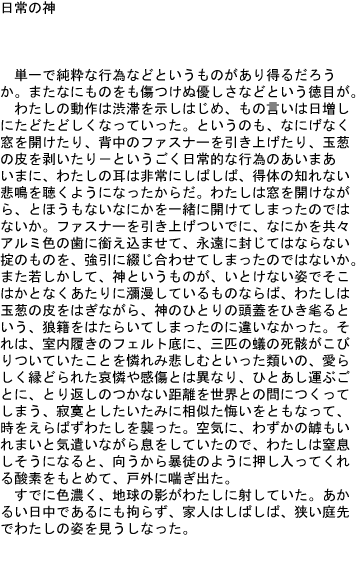 日常の神
単一で純粋な行為などというものがあり得るだろう
か。またなにものをも傷つけぬ優しさなどという徳目が。
わたしの動作は渋滞を示しはじめ、もの言いは日増し
にたどたどしくなっていった。というのも、なにげなく
窓を開けたり、背中のファスナーを引き上げたり、玉葱
の皮を剥いたり－というごく日常的な行為のあいまあ
いまに、わたしの耳は非常にしばしば、得体の知れない
悲鳴を聴くようになったからだ。わたしは窓を開けなが
ら、とほうもないなにかを一緒に開けてしまったのでは
ないか。ファスナーを引き上げついでに、なにかを共々
アルミ色の歯に銜え込ませて、永遠に封じてはならない
掟のものを、強引に綴じ合わせてしまったのではないか。
また若しかして、神というものが、いとけない姿でそこ
はかとなくあたりに瀰漫しているものならば、わたしは
玉葱の皮をはぎながら、神のひとりの頭蓋をひき毟ると
いう、狼籍をはたらいてしまったのに違いなかった。そ
れは、室内履きのフェルト底に、三匹の蟻の死骸がこび
りついていたことを憐れみ悲しむといった類いの、愛ら
しく縁どられた哀憐や感傷とは異なり、ひとあし運ぶご
とに、とり返しのつかない距離を世界との間につくって
しまう、寂寞としたいたみに相似た悔いをともなって、
時をえらばずわたしを襲った。空気に、わずかの罅もい
れまいと気遣いながら息をしていたので、わたしは窒息
しそうになると、向うから暴徒のように押し入ってくれ
る酸素をもとめて、戸外に喘ぎ出た。
すでに色濃く、地球の影がわたしに射していた。あか
るい日中であるにも拘らず、家人はしばしば、狭い庭先
でわたしの姿を見うしなった。